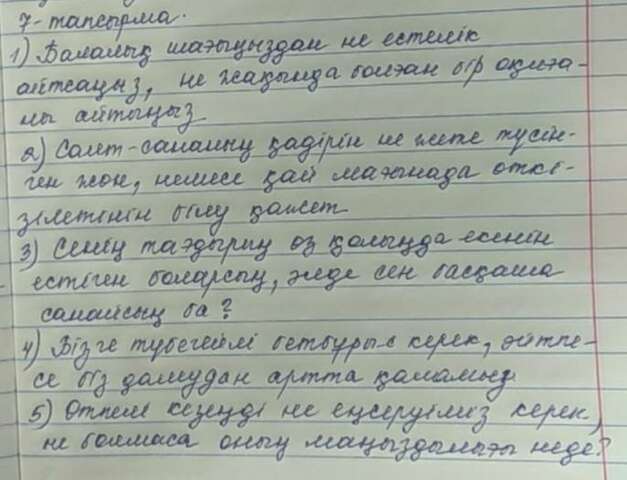 7-тапсырма.
1) Балалық шағыңыздан не естелік
айтсаңыз, не жақында болған бір оқиға-
ны айтыңыз
2) Салт-сананың қадірін не жете түсін-
ген жөн, немесе қай мағынада өткі-
зілетінін білу қажет
3) Сенің тағдырың өз қолыңда екенін
естіген боларсың, әлде сен басқаша
санайсың ба?
4) Бізге түбегейлі бетбұрыс керек, әйтпе-
се біз дамудан артта қаламыз
5) Өтпелі кезеңді не еңсеруіміз керек,
не болмаса оның маңыздылығы неде?